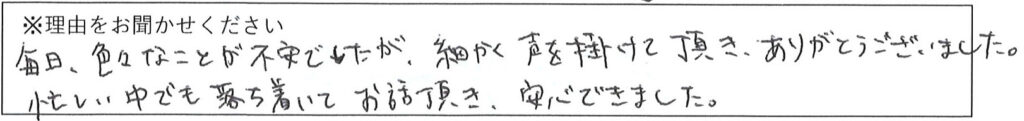 ※理由をお聞かせください
毎日、色々なことが不安でしたが、細かく声を掛けて頂き、ありがとうございました。
忙しい中でも落ち着いてお話頂き、安心できました。